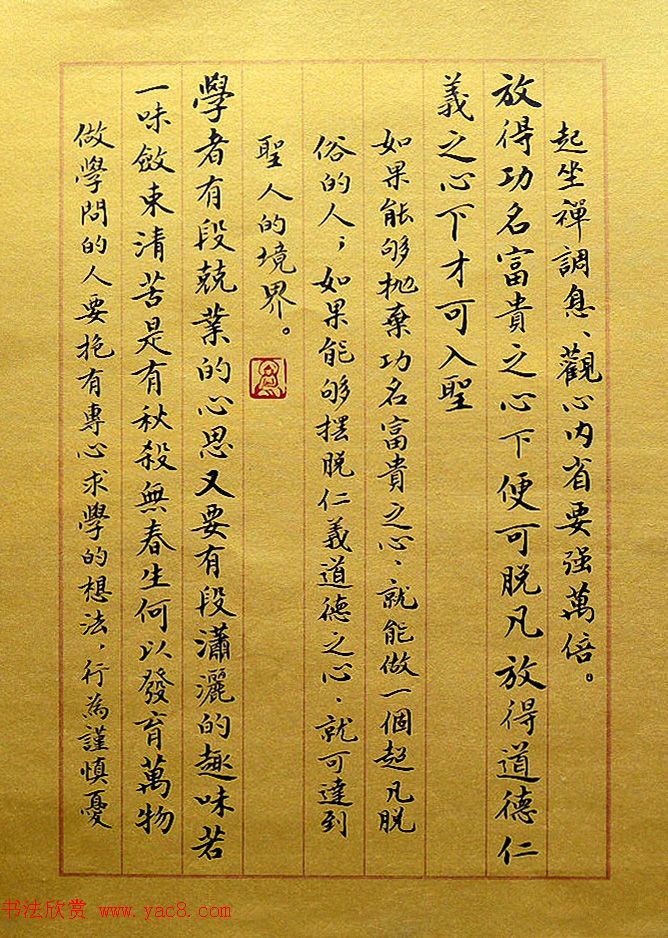 起坐禪調息、觀心内省要强萬倍。
放得功名富貴之心下便可脱凡放得道德仁
義之心下才可入聖
如果能够抛棄功名富貴之心、就能做一個超凡脱
俗的人；如果能够摆脱仁義道德之心、就可達到
聖人的境界。
學者有段兢業的心思又要有段瀟灑的趣味若
一味斂束清苦是有秋殺無春生何以發育萬物
做學問的人要抱有專心求學的想法，行為謹慎憂
书法欣赏 www.yac8.com